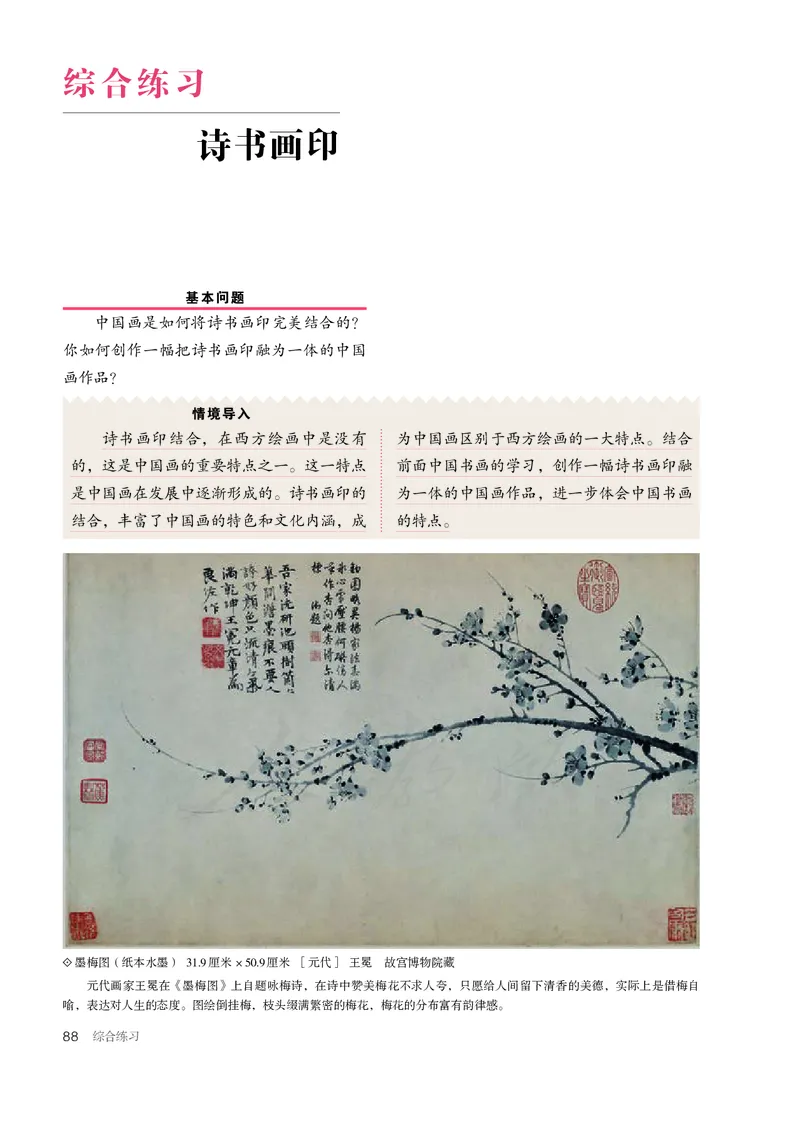 综合练习
诗书画印
基本问题
中国画是如何将诗书画印完美结合的？
你如何创作一幅把诗书画印融为一体的中国
画作品？
情境导入
诗书画印结合，在西方绘画中是没有
的，这是中国画的重要特点之一。这一特点
是中国画在发展中逐渐形成的。诗书画印的
结合，丰富了中国画的特色和文化内涵，成
为中国画区别于西方绘画的一大特点。结合
前面中国书画的学习，创作一幅诗书画印融
为一体的中国画作品，进一步体会中国书画
的特点。
吾家洗研池頭樹箇箇
華開澹墨痕不要人
誇好顏色只流清气
滿乾坤王冕元章為
良佐作
墨梅图（纸本水墨） 31.9厘米×50.9厘米 ［元代］ 王冕 故宫博物院藏
元代画家王冕在《墨梅图》上自题咏梅诗，在诗中赞美梅花不求人夸，只愿给人间留下清香的美德，实际上是借梅自
喻，表达对人生的态度。图绘倒挂梅，枝头缀满繁密的梅花，梅花的分布富有韵律感。
88 综合练习